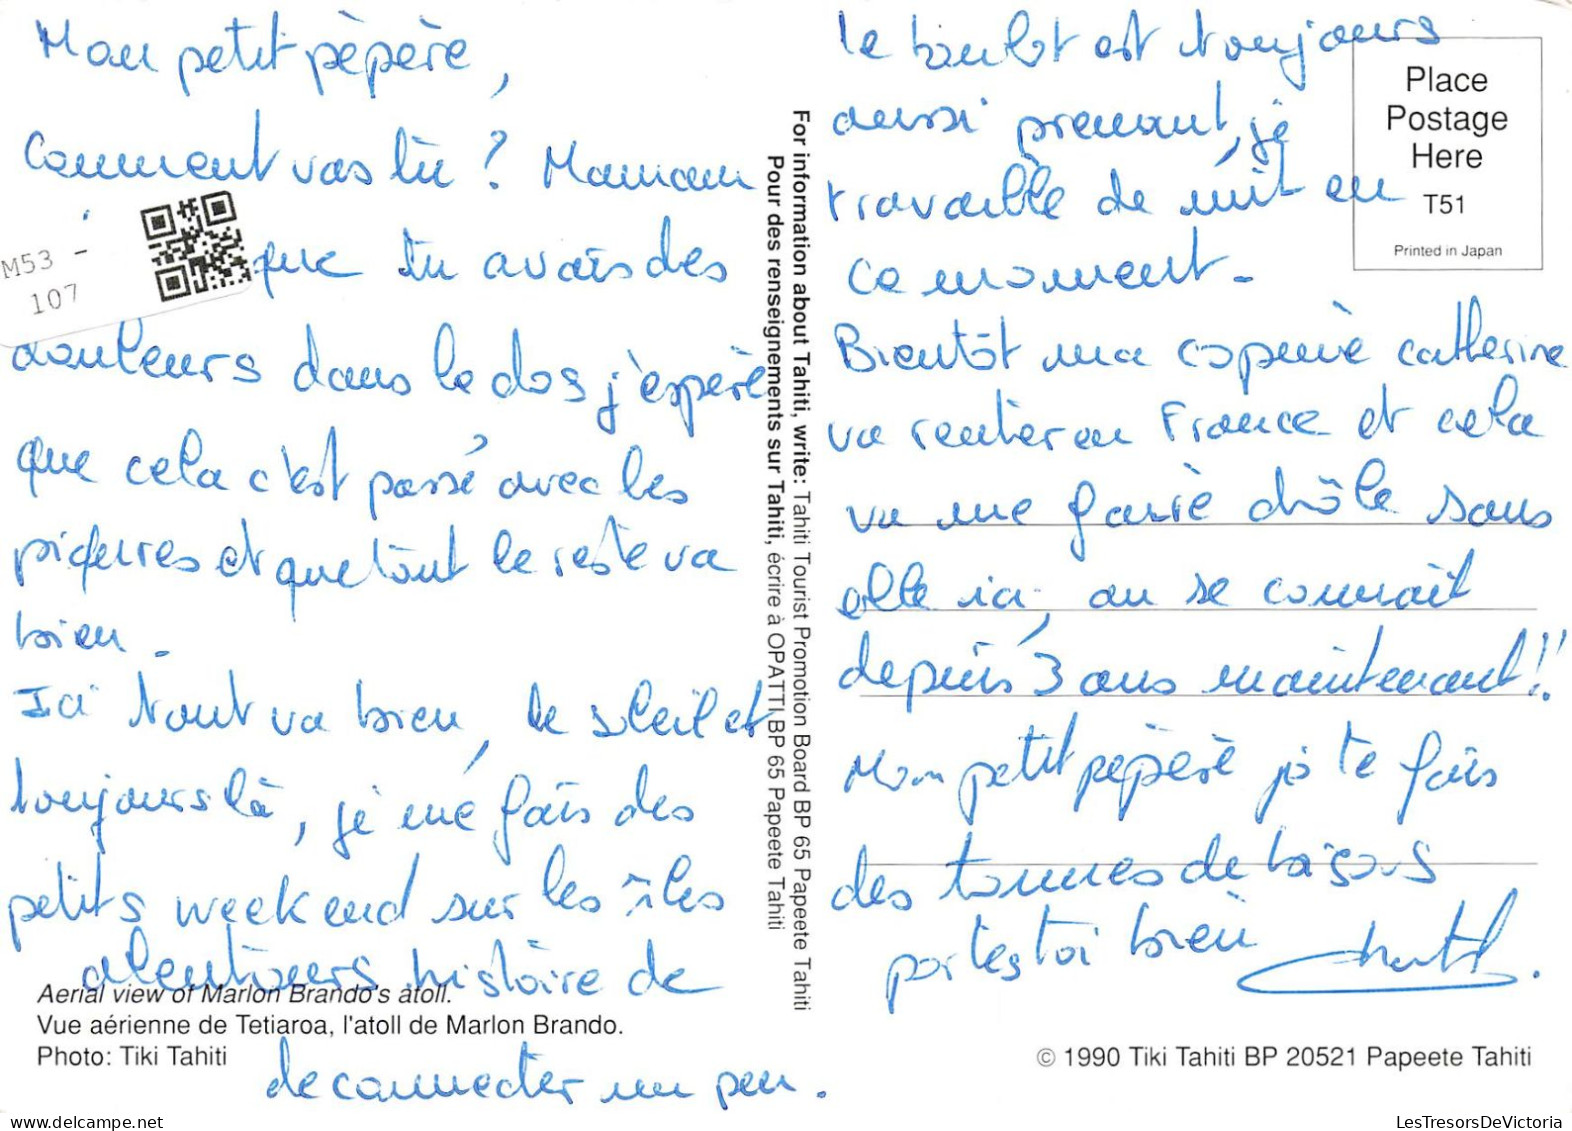 Mon petit pèpère,
Comment vas tu ? Maman
M53 -
107
que tu avais des
douleurs dans le dos j'espère
que cela c'est passé avec les
piqures et que tout le reste va
bien.
Ici tout va bien, le soleil et
toujours là, je me fais des
petits weekend sur les îles
alentours histoire de
Aerial view of Marlon Brando's atoll.
Vue aérienne de Tetiaroa, l'atoll de Marlon Brando.
Photo: Tiki Tahiti
deconnecter un peu.
For information about Tahiti, write: Tahiti Tourist Promotion Board BP 65 Papeete Tahiti
Pour des renseignements sur Tahiti, écrire à OPATTI BP 65 Papeete Tahiti
le boulot est toujours
aussi prenant, je
travaille de nuit en
ce moment.
Bientôt ma copine catherine
va rentrer en France et cela
va me faire drôle sans
elle ici, on se connaît
depuis 3 ans maintenant!!
Mon petit pépère je te fais
des tonnes de bisous
portes toi bien
Place
Postage
Here
T51
Printed in Japan
© 1990 Tiki Tahiti BP 20521 Papeete Tahiti
LesTresorsDeVictoria